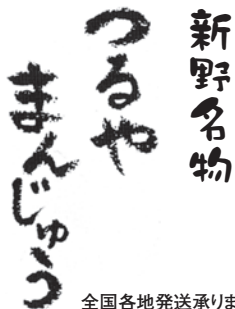 新野名物
つるや
まんじゅう
全国各地発送承りま